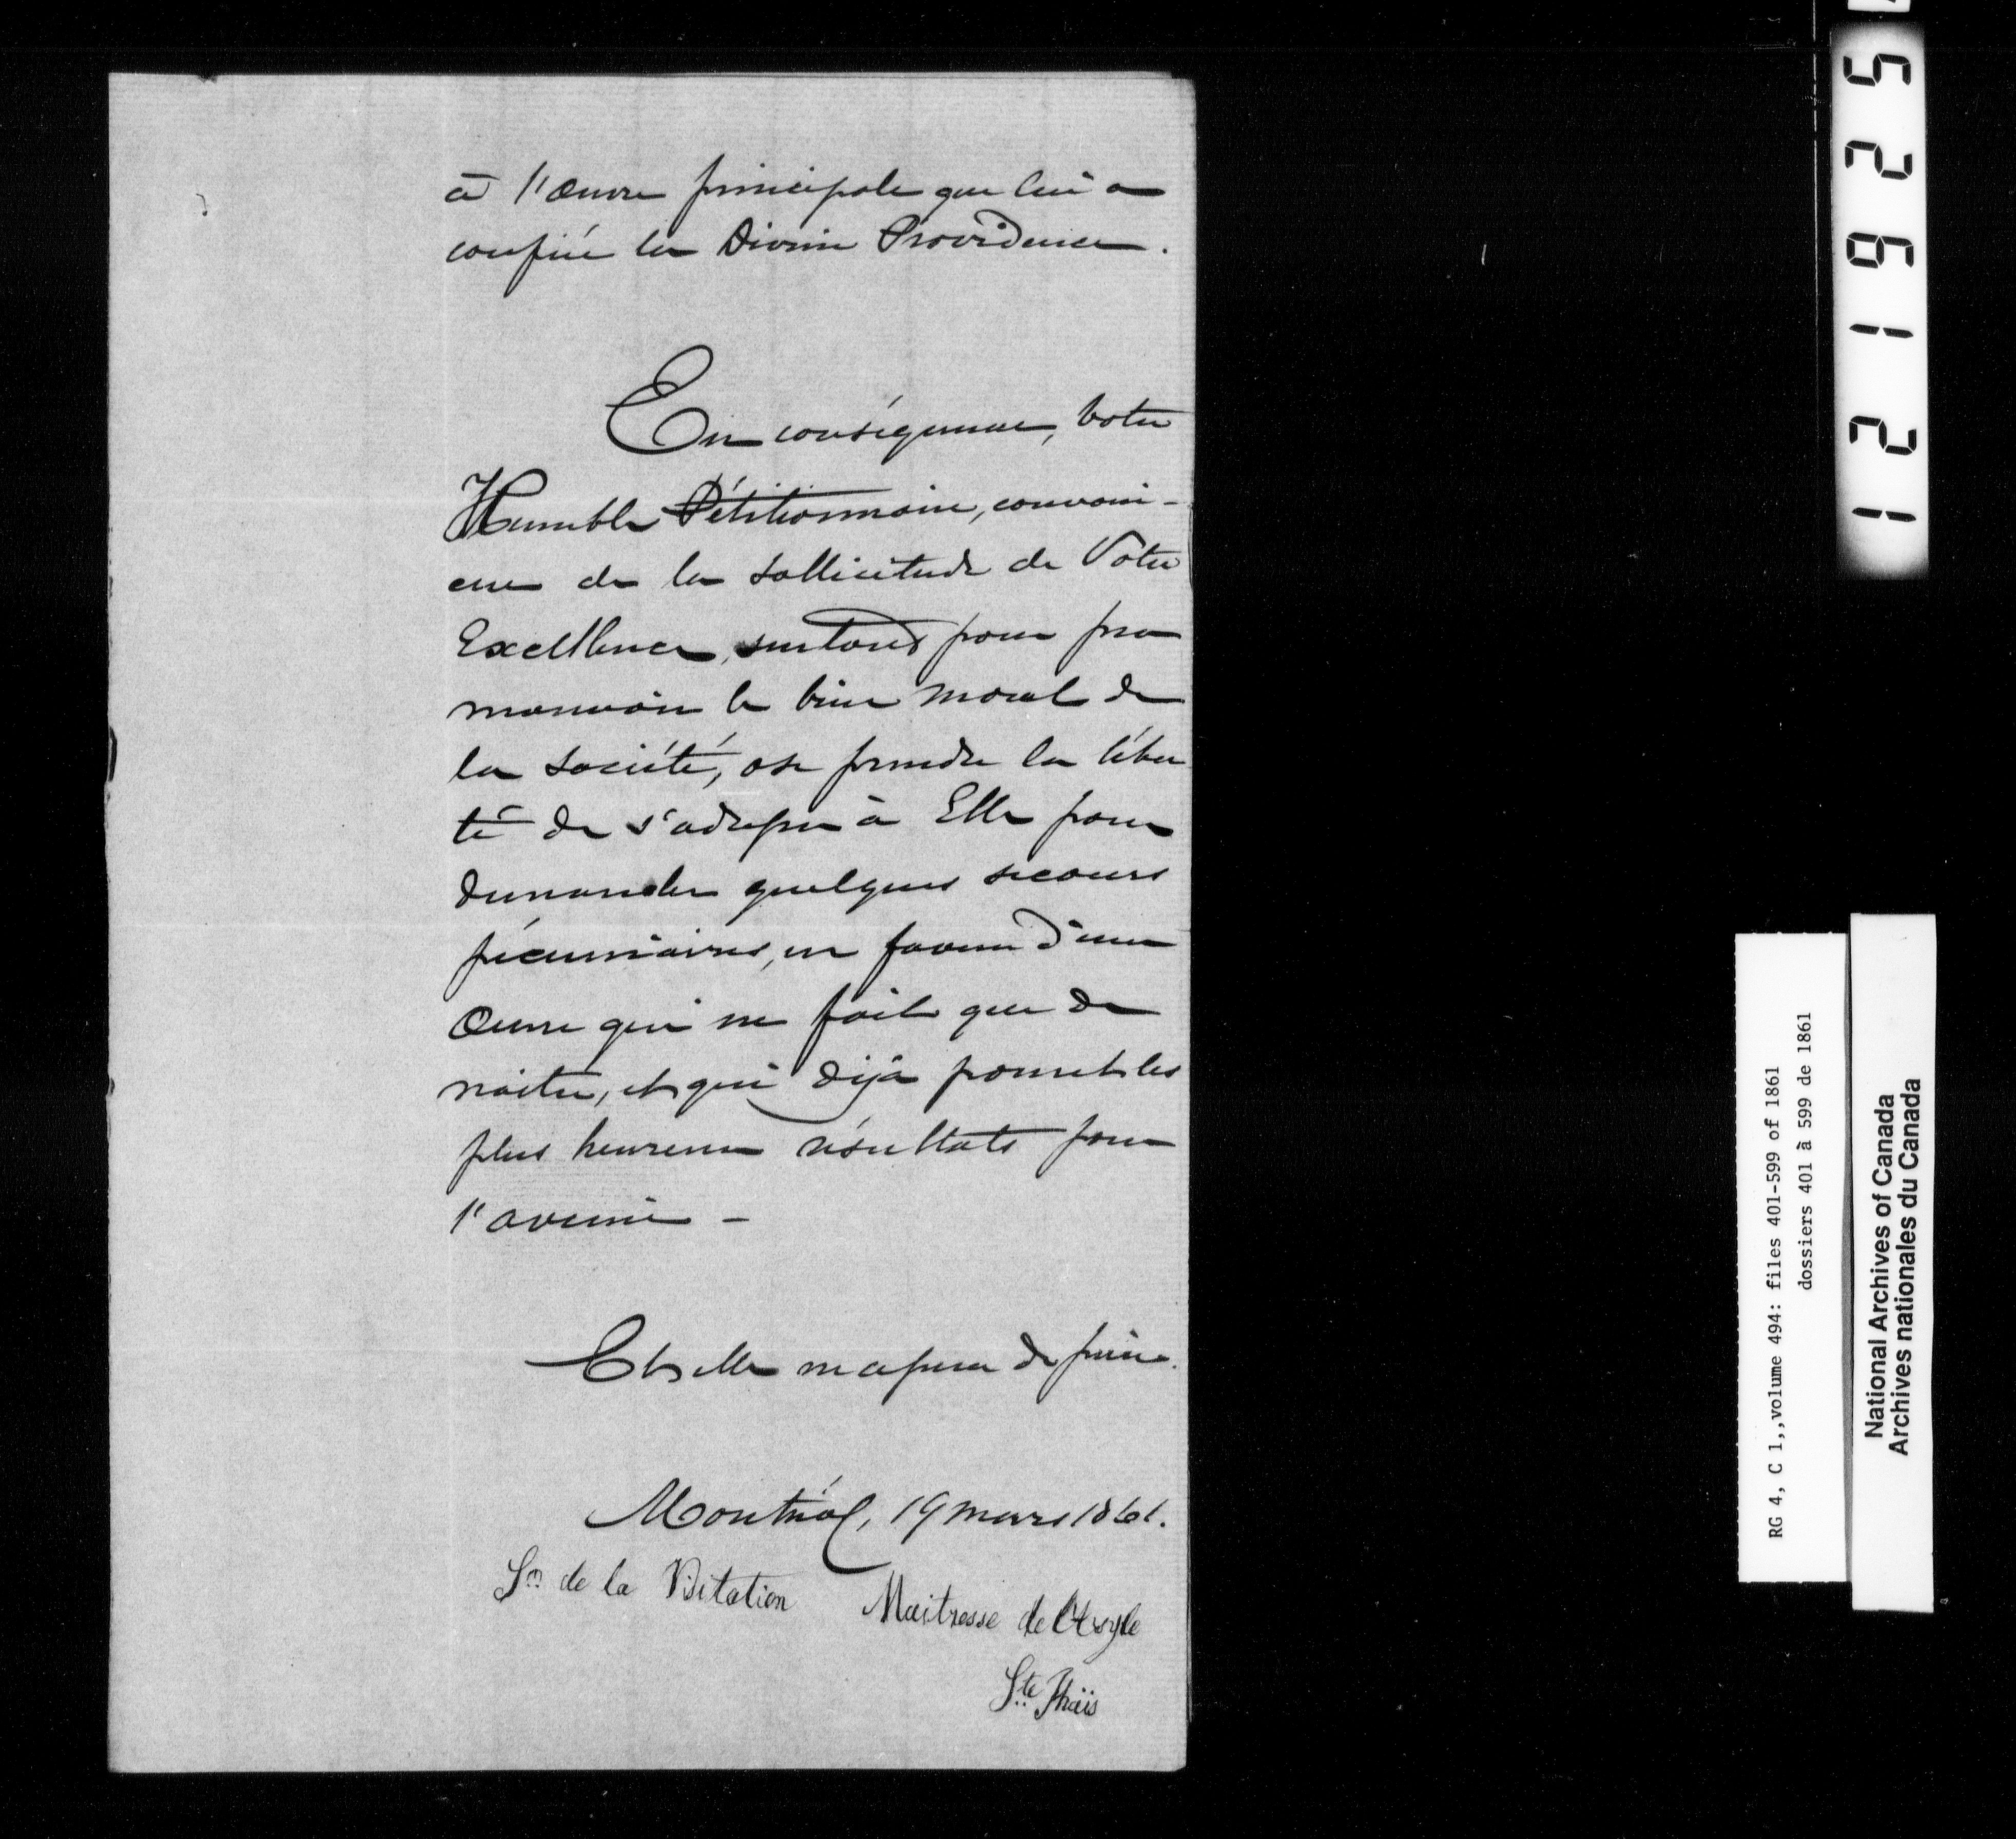 à l'Œuvre principale que lui a
confiée la Divine Providence.
En conséquence, Votre
Humble Pétitionnaire, convain-
cue de la sollicitude de Votre
Excellence, surtout pour pro
mouvoir le bien moral de
la société, ose prendre la liber
té de s'adresser à Elle pour
demander quelques secours
pécuniaires, en faveur d'une
Œuvre qui ne fait que de
naître, et qui déjà promet les
plus heureux résultats pour
l'avenir -
Et elle ne cessera de prier.
Montréal, 19 mars 1861.
Sr. de la Visitation Maitresse de l'Asyle
Ste Thaïs
121925
RG 4, C 1,,volume 494: files 401-599 of 1861
dossiers 401 à 599 de 1861
National Archives of Canada
Archives nationales du Canada